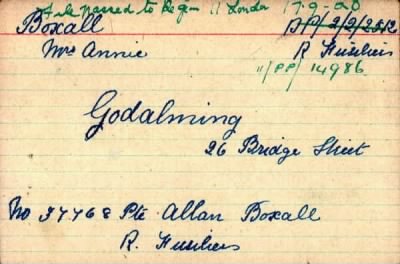 File passed to Region 11 London 17.9.20
Boxall
Mrs Annie
R Fusiliers
11/PP/14986
Godalming
26 Bridge Street
No 37768 Pte Allan Boxall
R. Fusiliers